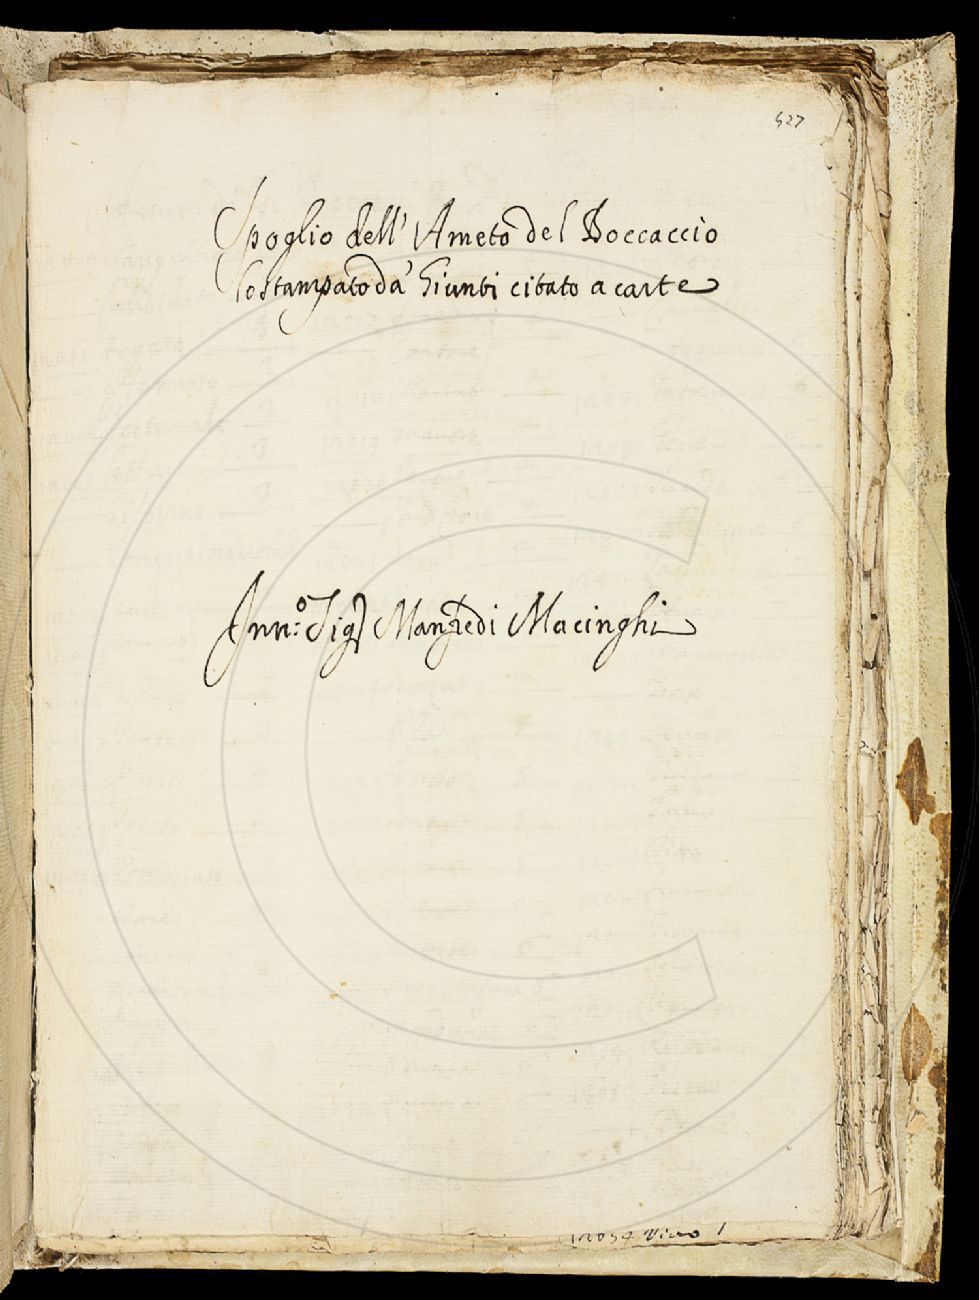 427
Spoglio dell' Ameto del Boccaccio
lo stampato da' Giunti citato a carte
Inn:º Sigʳ Manfredi Macinghi